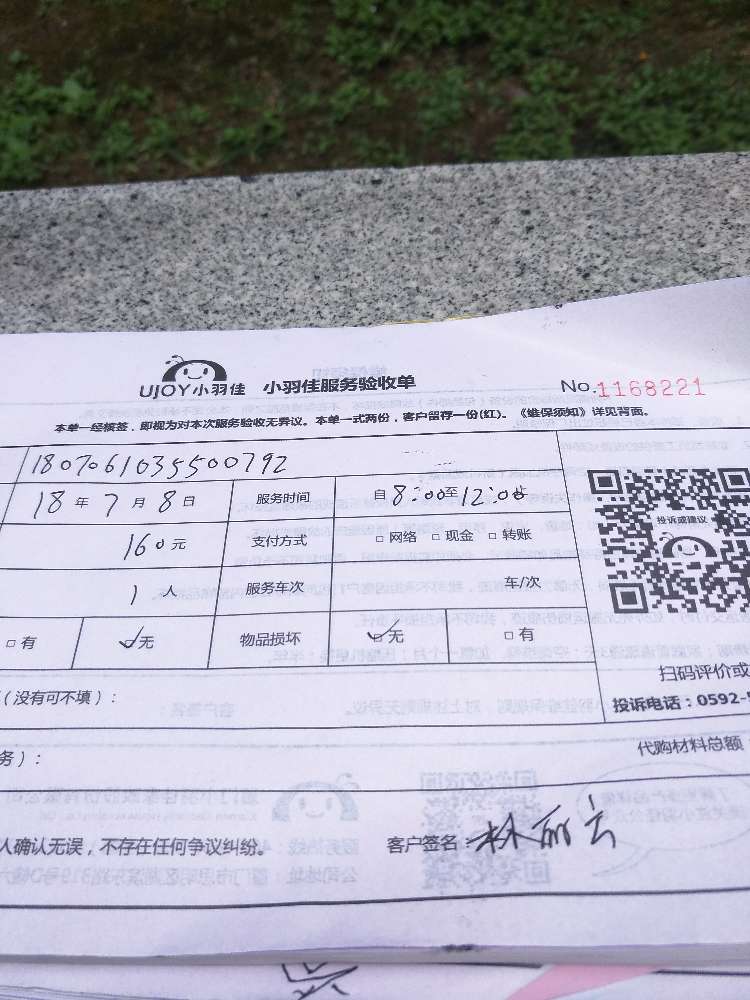 UJOY小羽佳 小羽佳服务验收单 No.1168221
本单一经核签，即视为对本次服务验收无异议。本单一式两份，客户留存一份(红)。《维保须知》详见背面。
1807061035500792
18 年 7 月 8 日 服务时间 自 8:00 至 12:00 止
160 元 支付方式 □ 网络 □ 现金 □ 转账
投诉或建议
1 人 服务车次 车/次
□ 有 ☑无 物品损坏 ☑无 □ 有
扫码评价或
(没有可不填)：
投诉电话：0592-
代购材料总额
务)：
人确认无误，不存在任何争议纠纷。 客户签名：林丽云